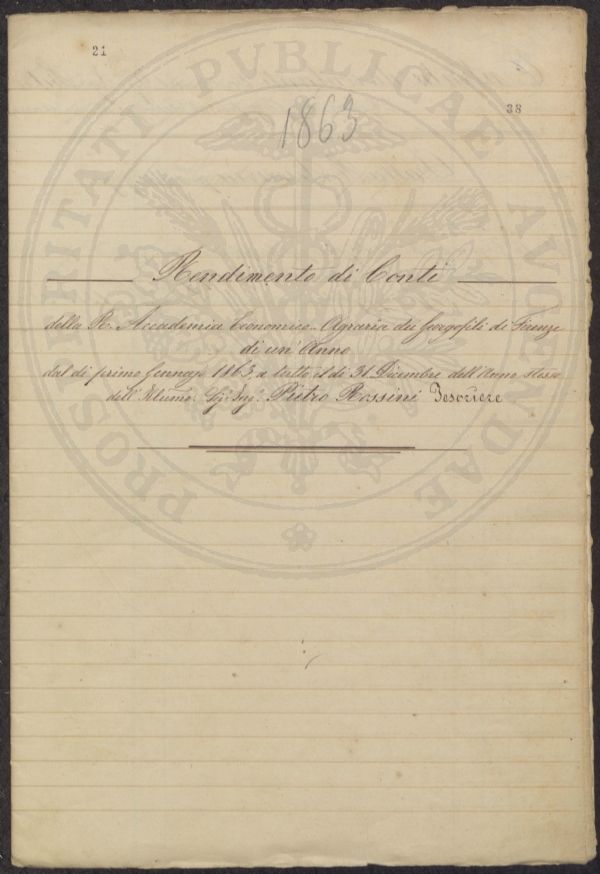 21
38
1863
Rendimento di Conti
della R. Accademia Economico-Agraria dei Georgofili di Firenze
di un' Anno
dal dì primo Gennajo 1863 a tutto il dì 31 Dicembre dell'Anno stesso
dell' Illumo. Sig. Ing. Pietro Rossini Tesoriere
PROSPERITATI PVBLICAE AVGENDAE